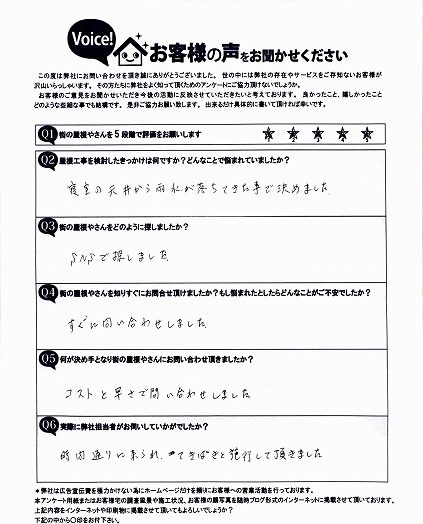 Voice!
お客様の声をお聞かせください
この度は弊社にお問い合わせを頂き誠にありがとうございました。世の中には弊社の存在やサービスをご存知ないお客様が
沢山いらっしゃいます。その方たちに弊社をよく知って頂くためのアンケートにご協力頂けないでしょうか。
お客様のご意見をお聞かせいただき今後の活動に反映させていただきたいと考えております。良かったこと、嬉しかったこと
どのような些細な事でも結構です。是非ご協力お願い致します。出来るだけ具体的に書いて頂ければ幸いです。
Q1 街の屋根やさんを5段階で評価をお願いします ★ ★ ★ ★ ★
Q2 屋根工事を検討したきっかけは何ですか?どんなことで悩まれていましたか?
寝室の天井から雨水が落ちてきた事で決めました。
Q3 街の屋根やさんをどのように探しましたか?
SNSで探しました。
Q4 街の屋根やさんを知りすぐにお問合せ頂けましたか?もし悩まれたとしたらどんなことがご不安でしたか?
すぐに問い合わせしました。
Q5 何が決め手となり街の屋根やさんにお問い合わせ頂きましたか?
コストと早さで問い合わせしました
Q6 実際に弊社担当者がお伺いしていかがでしたか?
時間通りに来られ、てきぱきと施行して頂きました
*弊社は広告宣伝費を極力かけない為にホームページだけを頼りにお客様への営業活動を行っております。
本アンケート用紙またはお客様宅の調査風景や施工内容、お客様の顔写真を随時ブログ形式のインターネットに掲載させて頂いております。
上記内容をインターネットや印刷物に掲載させて頂いてもよろしいでしょうか?
下記の中から〇印をお付け下さい。